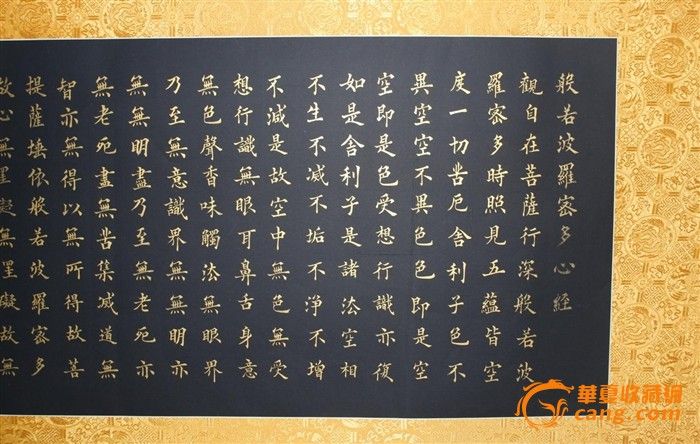 般若波羅密多心経
觀自在菩薩行深般若波
羅密多時照見五蘊皆空
度一切苦厄舍利子色不
異空空不異色色即是空
空即是色受想行識亦復
如是舍利子是諸法空相
不生不減不垢不淨不增
不減是故空中無色無受
想行識無眼耳鼻舌身意
無色聲香味觸法無眼界
乃至無意識界無無明亦
無無明盡乃至無老死亦
無老死盡無苦集减道無
智亦無得以無所得故菩
提薩埵依般若波羅密多
故心無罣礙無罣礙故無
華夏收藏網
cang.com